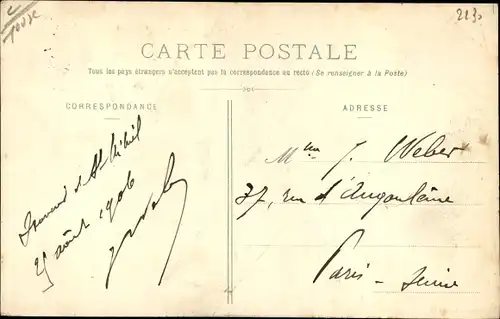 2130
CARTE POSTALE
Tous les pays étrangers n'acceptent pas la correspondance au recto (Se renseigner à la Poste)
CORRESPONDANCE
ADRESSE
Souvenir de St Mihiel
25 août 1906
Mme J. Weber
37, rue d'Angoulême
Paris - Seine